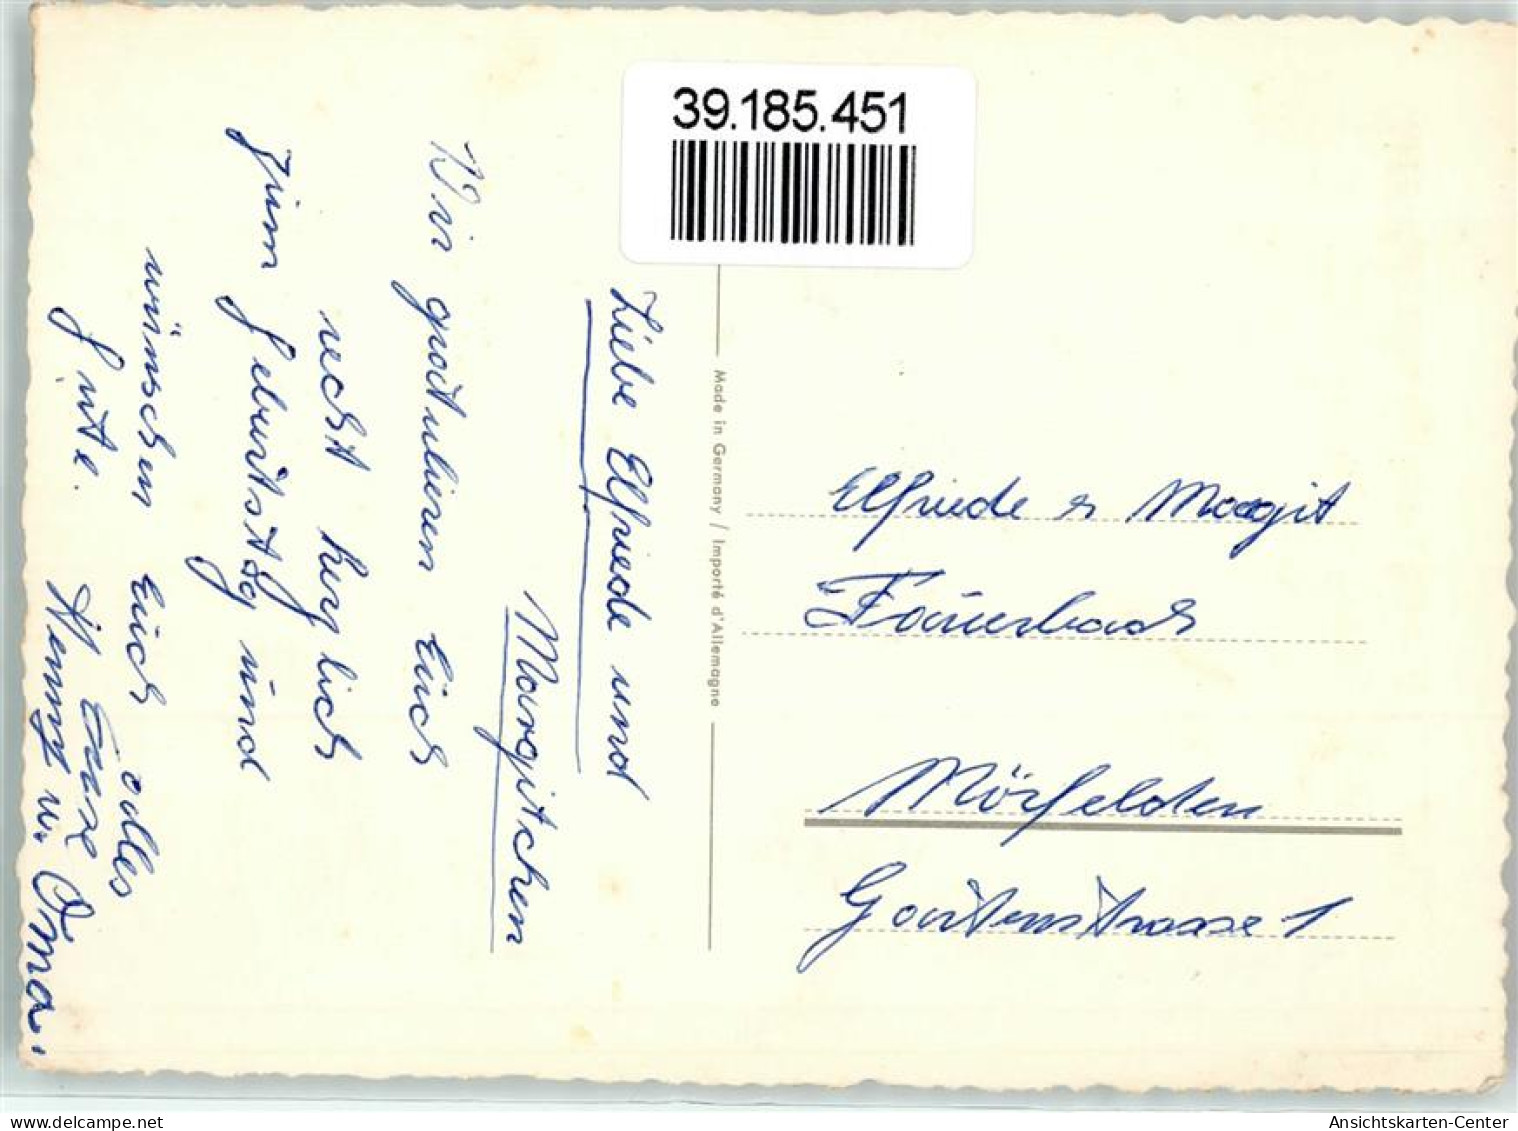 39.185.451
Liebe Elfriede und
Margitchen
Wir gratulieren Euch
recht herzlich
zum Geburtstag und
wünschen Euch alles
Gute. Eure
u. Oma.
Made in Germany / Importé d'Allemagne
Elfriede & Margit
Mörfelden
Gartenstrasse 1
Ansichtskarten-Center